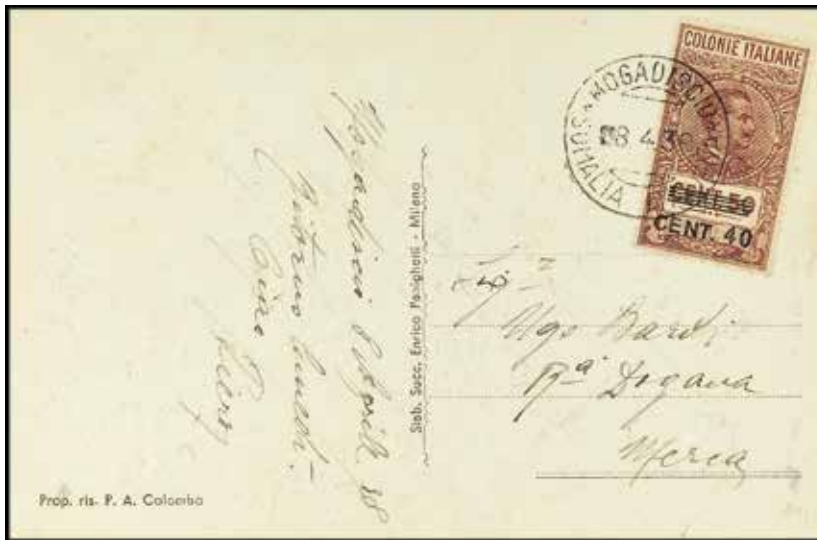 COLONIE ITALIANE
CENT. 50
CENT. 40
MOGADISCIO
SOMALIA
8 4 38
Mogadiscio 8 Aprile 38
Ritorno lunedì.
Ciao
Piero
Stab. Succ. Enrico Panigheni - Milano
Sig.
Ugo Bardi
Rª Dogana
Merca
Prop. ris. P. A. Colombo